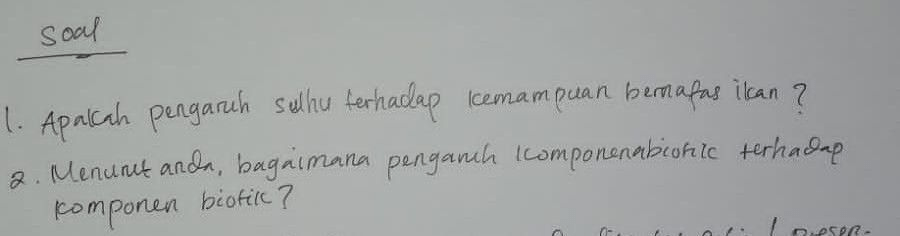 Soal
1. Apakah pengaruh suhu terhadap kemampuan bernafas ikan ?
2. Menurut anda, bagaimana pengaruh komponenabiotik terhadap
komponen biotik ?